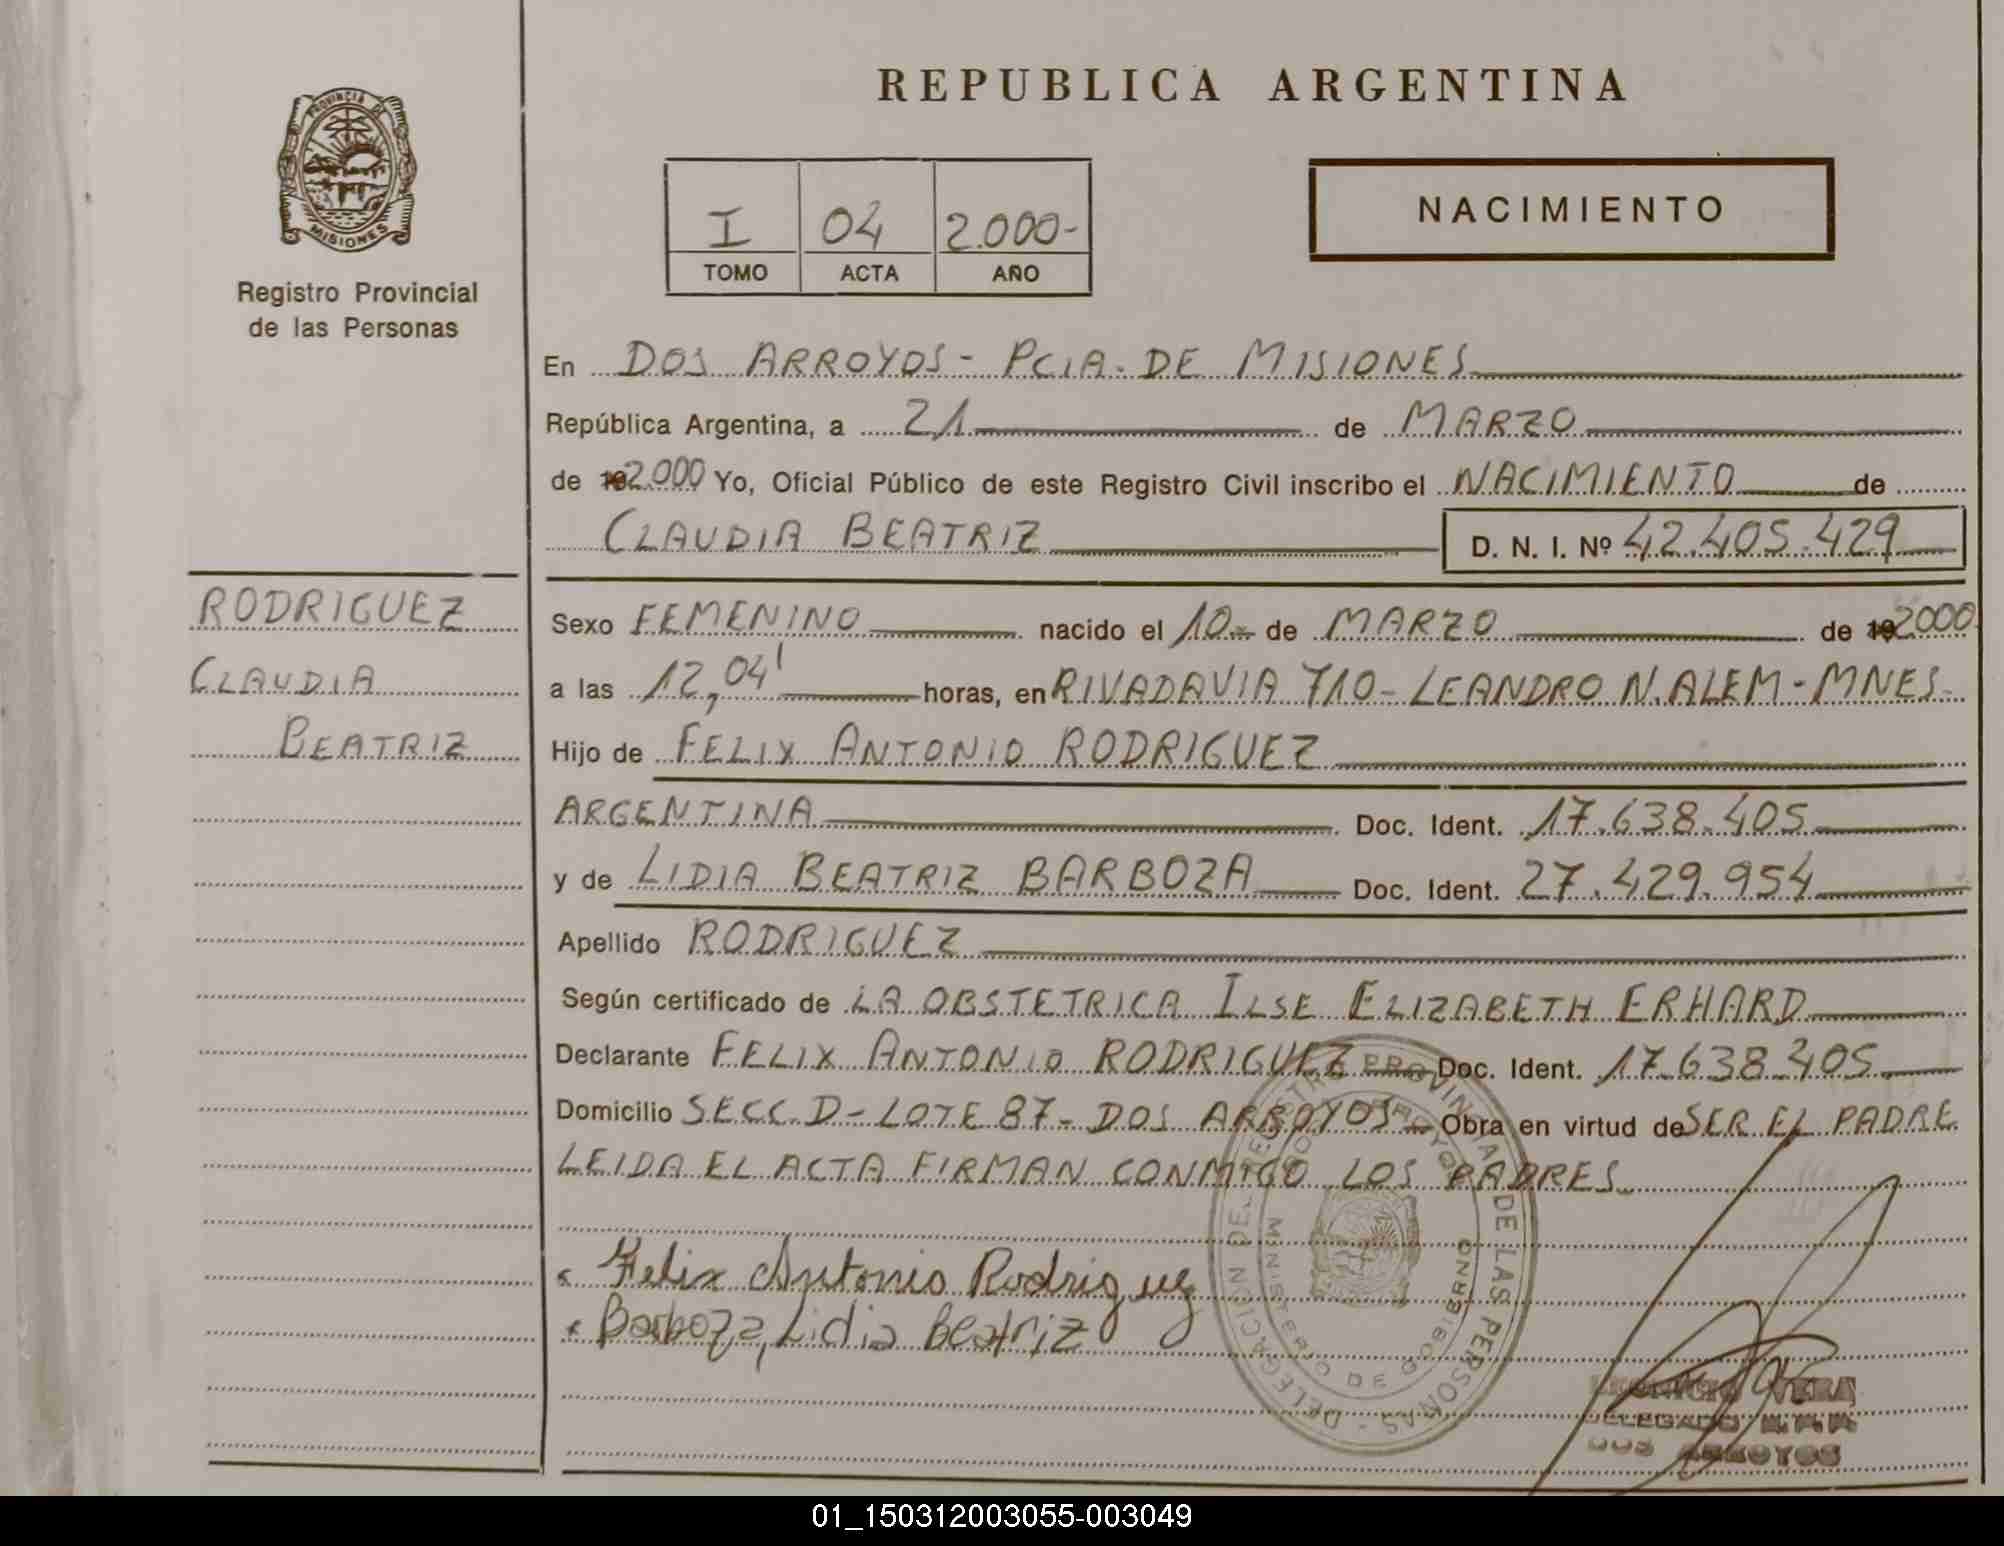 REPUBLICA ARGENTINA
PROVINCIA DE
MISIONES
Registro Provincial
de las Personas
I 04 2.000-
TOMO ACTA AÑO
NACIMIENTO
En DOS ARROYOS - PCIA. DE MISIONES
República Argentina, a 21 de MARZO
de 19 2.000 Yo, Oficial Público de este Registro Civil inscribo el NACIMIENTO de
CLAUDIA BEATRIZ D. N. I. Nº 42.405.429
RODRIGUEZ
CLAUDIA
BEATRIZ
Sexo FEMENINO nacido el 10- de MARZO de 19 2000
a las 12,04' horas, en RIVADAVIA 710 - LEANDRO N. ALEM - MNES-
Hijo de FELIX ANTONIO RODRIGUEZ
ARGENTINA Doc. Ident. 17.638.405
y de LIDIA BEATRIZ BARBOZA Doc. Ident. 27.429.954
Apellido RODRIGUEZ
Según certificado de LA OBSTETRICA ILSE ELIZABETH ERHARD
Declarante FELIX ANTONIO RODRIGUEZ Doc. Ident. 17.638.405
Domicilio SECC. D - LOTE 87 - DOS ARROYOS - Obra en virtud de SER EL PADRE
LEIDA EL ACTA FIRMAN CONMIGO LOS PADRES
Felix Antonio Rodriguez
Barboza, Lidia Beatriz
DELEGACION DEL REGISTRO PROVINCIAL DE LAS PERSONAS -
DOS ARROYOS
MINISTERIO DE GOBIERNO
VERA
DELEGADO
DOS ARROYOS
01_150312003055-003049